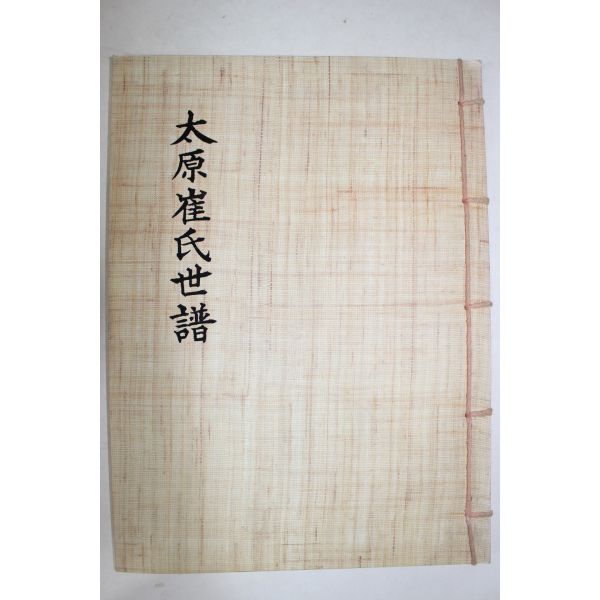 太原崔氏世譜